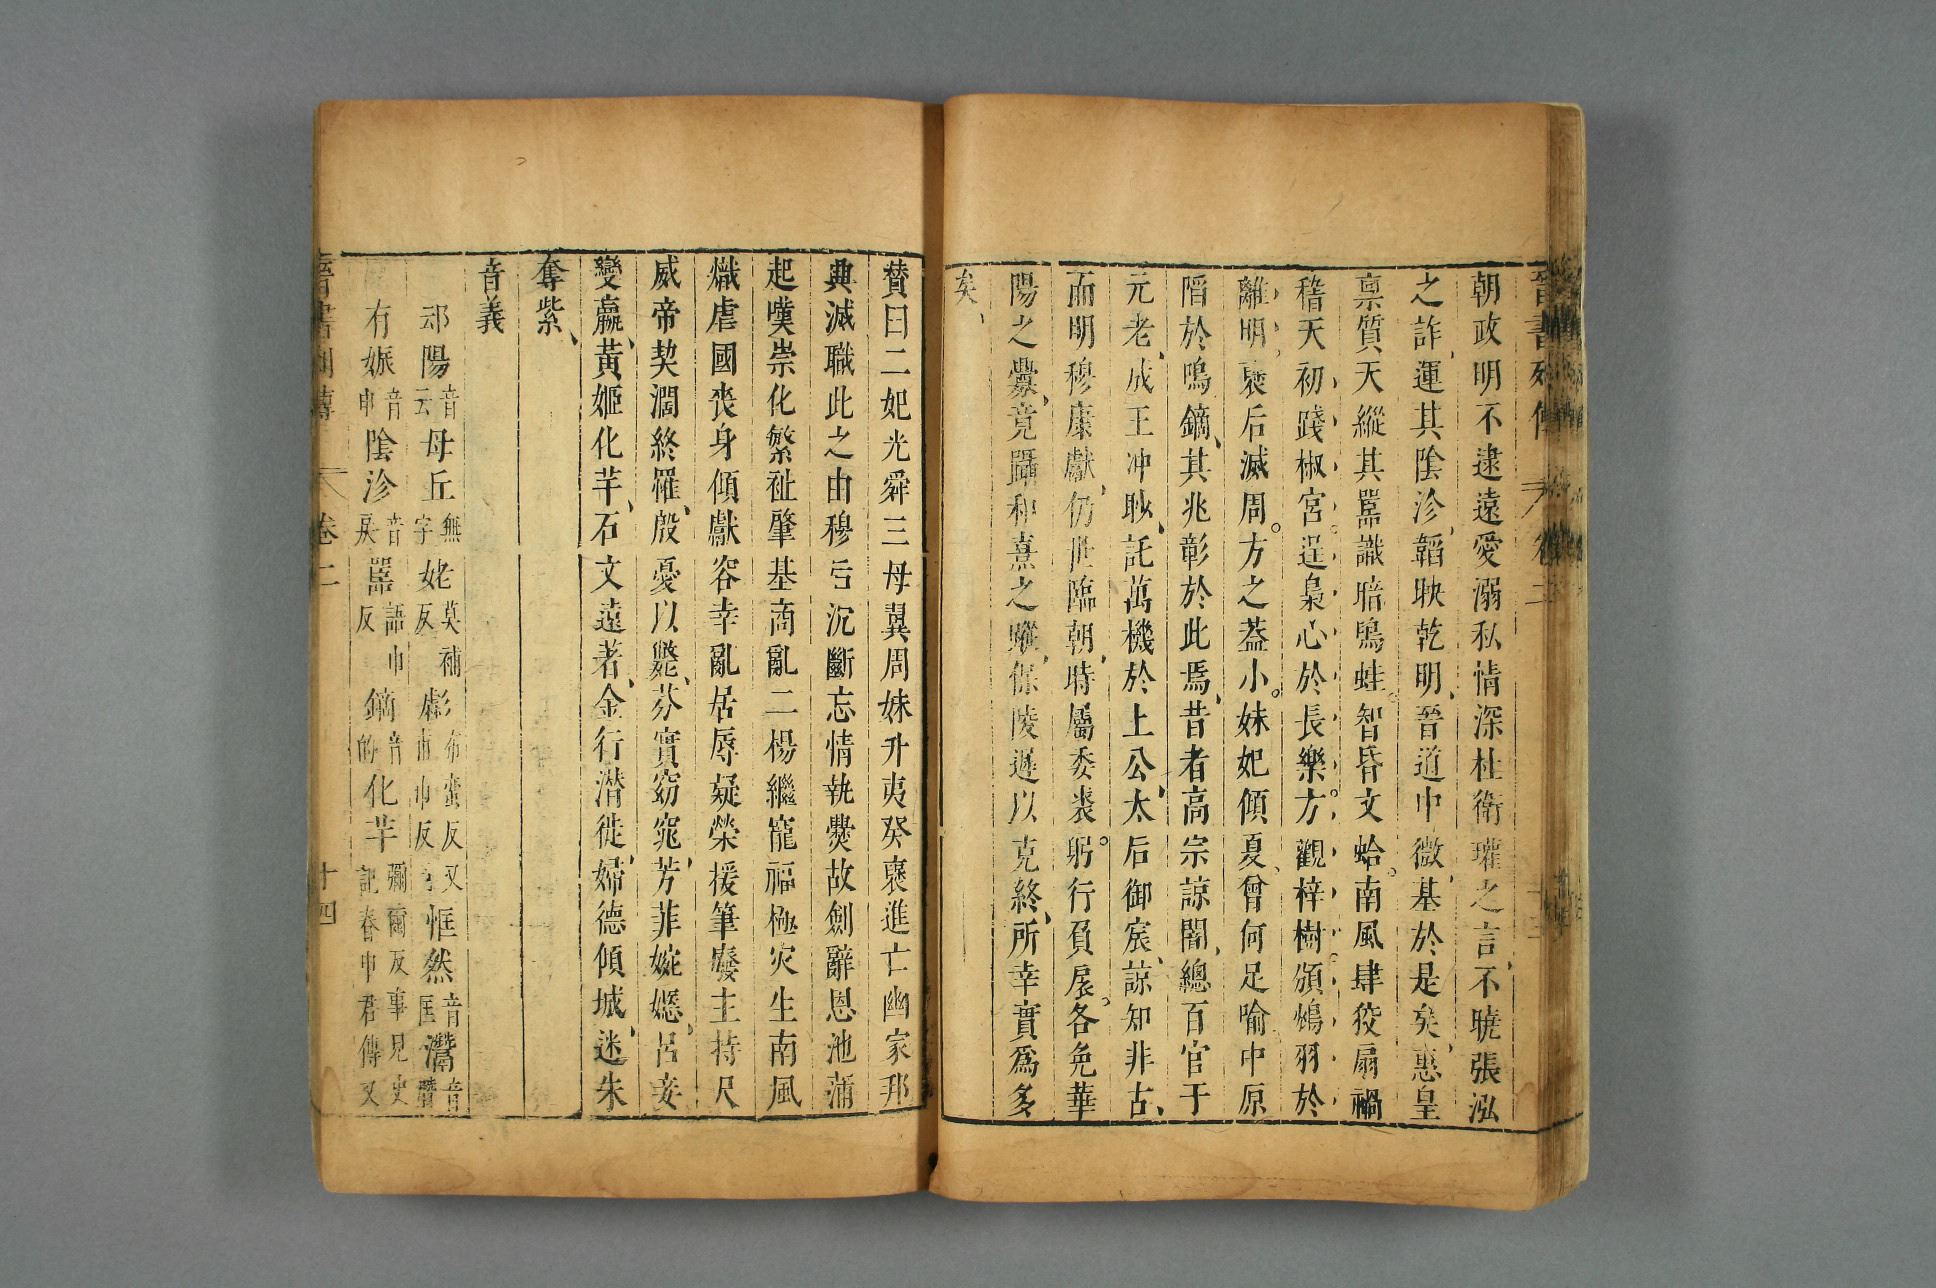 晉書列傳 卷二
朝政明不逮遠愛溺私情深杜衛瓘之言、不曉張泓
之詐、運其陰沴、韜映乾明、晉道中微、基於是矣、惠皇
禀質天縱其嚚識暗鳴蛙。智昏文蛤。南風肆狡扇禍
稽天初踐椒宮。逞梟心於長樂。方觀梓樹。頒鴆羽於
離明、褒后滅周。方之葢小。妹妃傾夏、曾何足喻中原
陷於鳴鏑、其兆彰於此焉、昔者高宗諒闇、總百官于
元老、成王冲眇、託萬機於上公、太后御宸、諒知非古、
而明穆康獻、仍世臨朝、時屬委裘。躬行負扆。各免華
陽之釁、竟躡和熹之蹤、保陵遲以克終、所幸實爲多
矣、
贊曰二妃光舜三母翼周妹升夷癸褒進亡幽家邦
興滅職此之由穆后沉斷忘情執爨故劍辭恩池蒲
起嘆崇化繁祉肇基商亂二楊繼寵福極灾生南風
熾虐國喪身傾獻容幸亂居辱疑榮援筆廢主持尺
威帝契濶終罹、殷憂以斃、芬實窈窕、芳菲婉嫕。呂妾
變嬴、黃姬化芊、石文遠著、金行潜徙、婦德傾城、迷朱
奪紫、
音義
邧陽 音云 母丘 無字 姥 莫補反 彪 布蠻反又甫巾反 恇然 音匡 灊 音
有娠 音申 陰沴 音戾 嚚 語巾反 鏑 音的 化芊 彌爾反事見史記春申君傳又
晉書列傳 卷二 十四